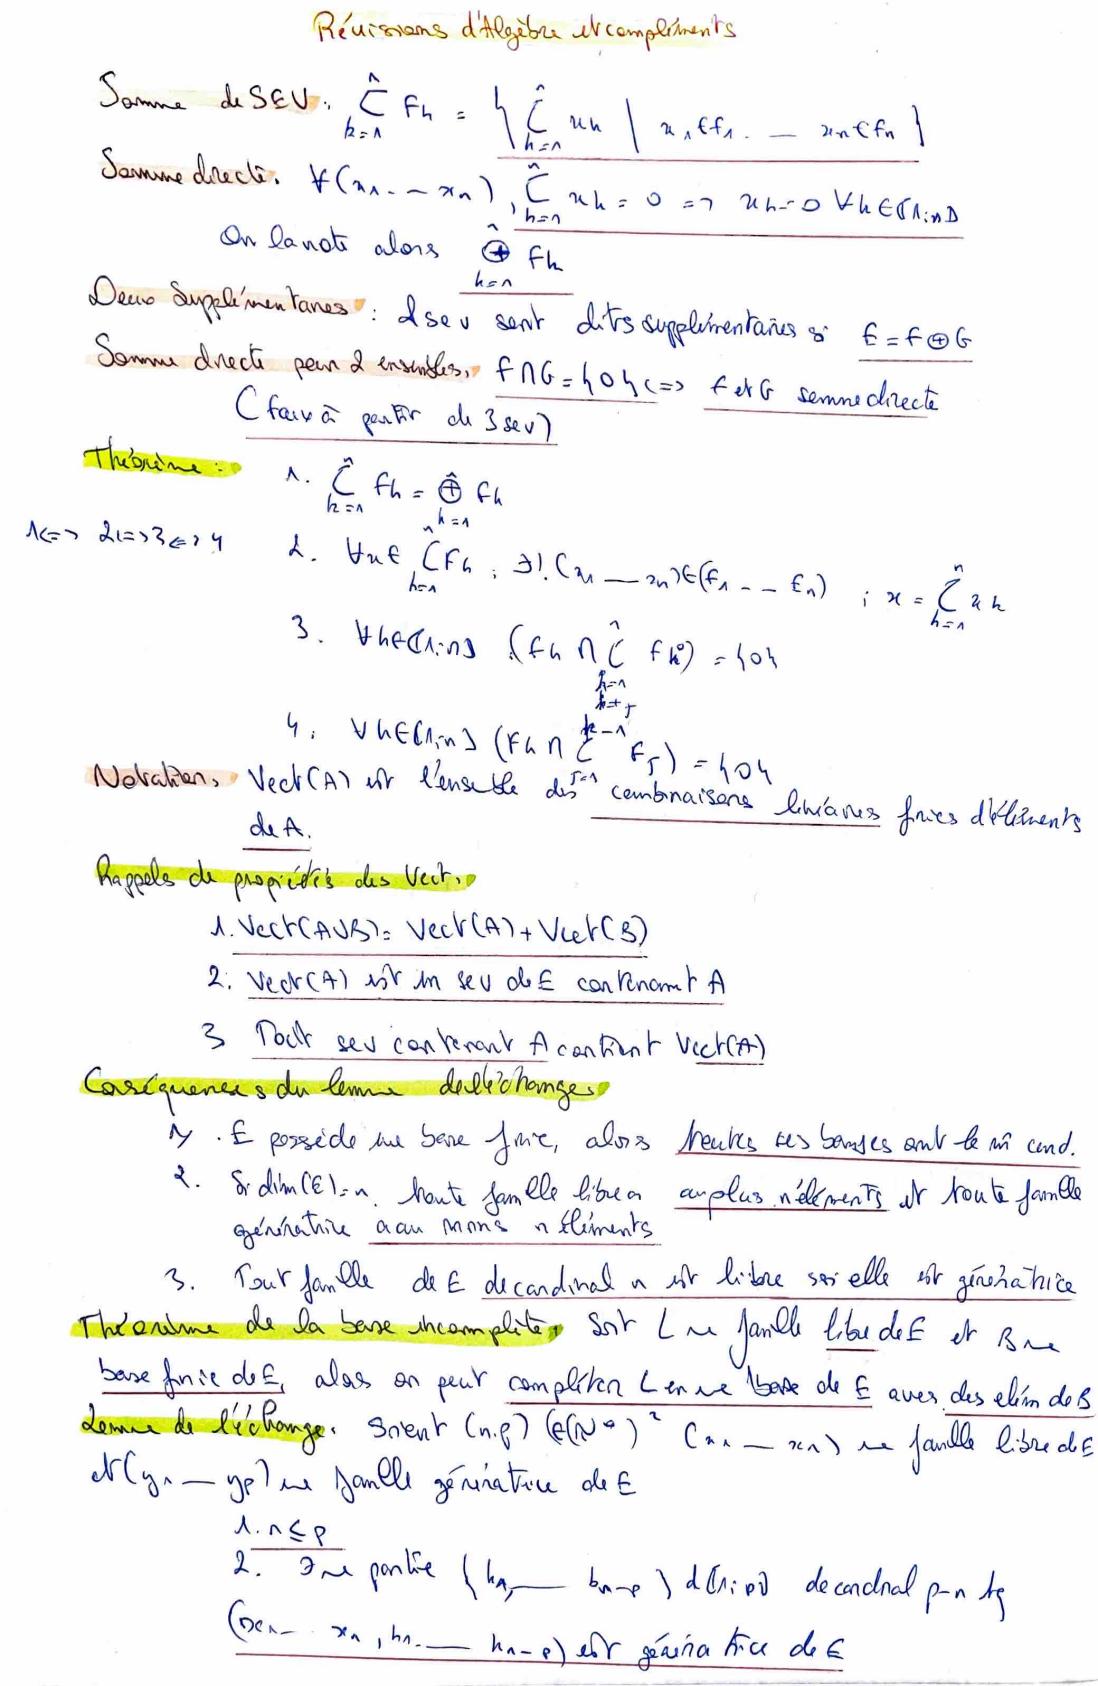 Révisions d'Algèbre et compléments
Somme de SEV : ∑ₖ₌₁ⁿ Fk = { ∑ₖ₌₁ⁿ xk | x₁∈F₁ . — xn∈Fn }
Somme directe. ∀(x₁ - - xn), ∑ₖ₌₁ⁿ xk = 0 => xk = 0 ∀k∈⟦1;n⟧
On la note alors ⊕ₖ₌₁ⁿ Fk
Deux Supplémentaires : 2 sev sont dits supplémentaires si E = F ⊕ G
Somme directe pour 2 ensembles. F∩G = {0} <=> F et G somme directe
(faux à partir de 3 sev)
Théorème :
1. ∑ₖ₌₁ⁿ Fk = ⊕ₖ₌₁ⁿ Fk
1<=> 2<=>3<=>4
2. ∀x∈ ∑ₖ₌₁ⁿ Fk , ∃! (x₁ — xn)∈(F₁ - - Fn) ; x = ∑ₖ₌₁ⁿ xk
3. ∀k∈⟦1;n⟧ (Fk ∩ ∑ Fk) = {0}
4. ∀k∈⟦1;n⟧ (Fk ∩ ∑ⱼ₌₁ᵏ⁻¹ Fj) = {0}
Notation. Vect(A) est l'ensemble des combinaisons linéaires finies d'éléments
de A.
Rappels de propriétés des Vect.
1. Vect(A∪B) = Vect(A) + Vect(B)
2. Vect(A) est un sev de E contenant A
3 Tout sev contenant A contient Vect(A)
Coséquences du lemme de l'échange
1) . E possède une base finie, alors toutes ses bases ont le m̂ card.
2. Si dim(E)=n. toute famille libre a au plus n éléments et toute famille
génératrice a au moins n éléments
3. Tout famille de E de cardinal n est libre ssi elle est génératrice
Théorème de la base incomplète. Soit L une famille libre de E et B une
base finie de E, alors on peut compléter L en une base de E avec des elém de B
Lemme de l'échange. Soient (n.p) ∈(ℕ*)² (x₁ — xn) une famille libre de E
et (y₁ — yp) une famille génératrice de E
1. n ≤ p
2. ∃ une partie { k₁, — kn-p } d⟦1;p⟧ de cardinal p-n tq
(x₁ - xn , k₁. — kn-p) est génératrice de E